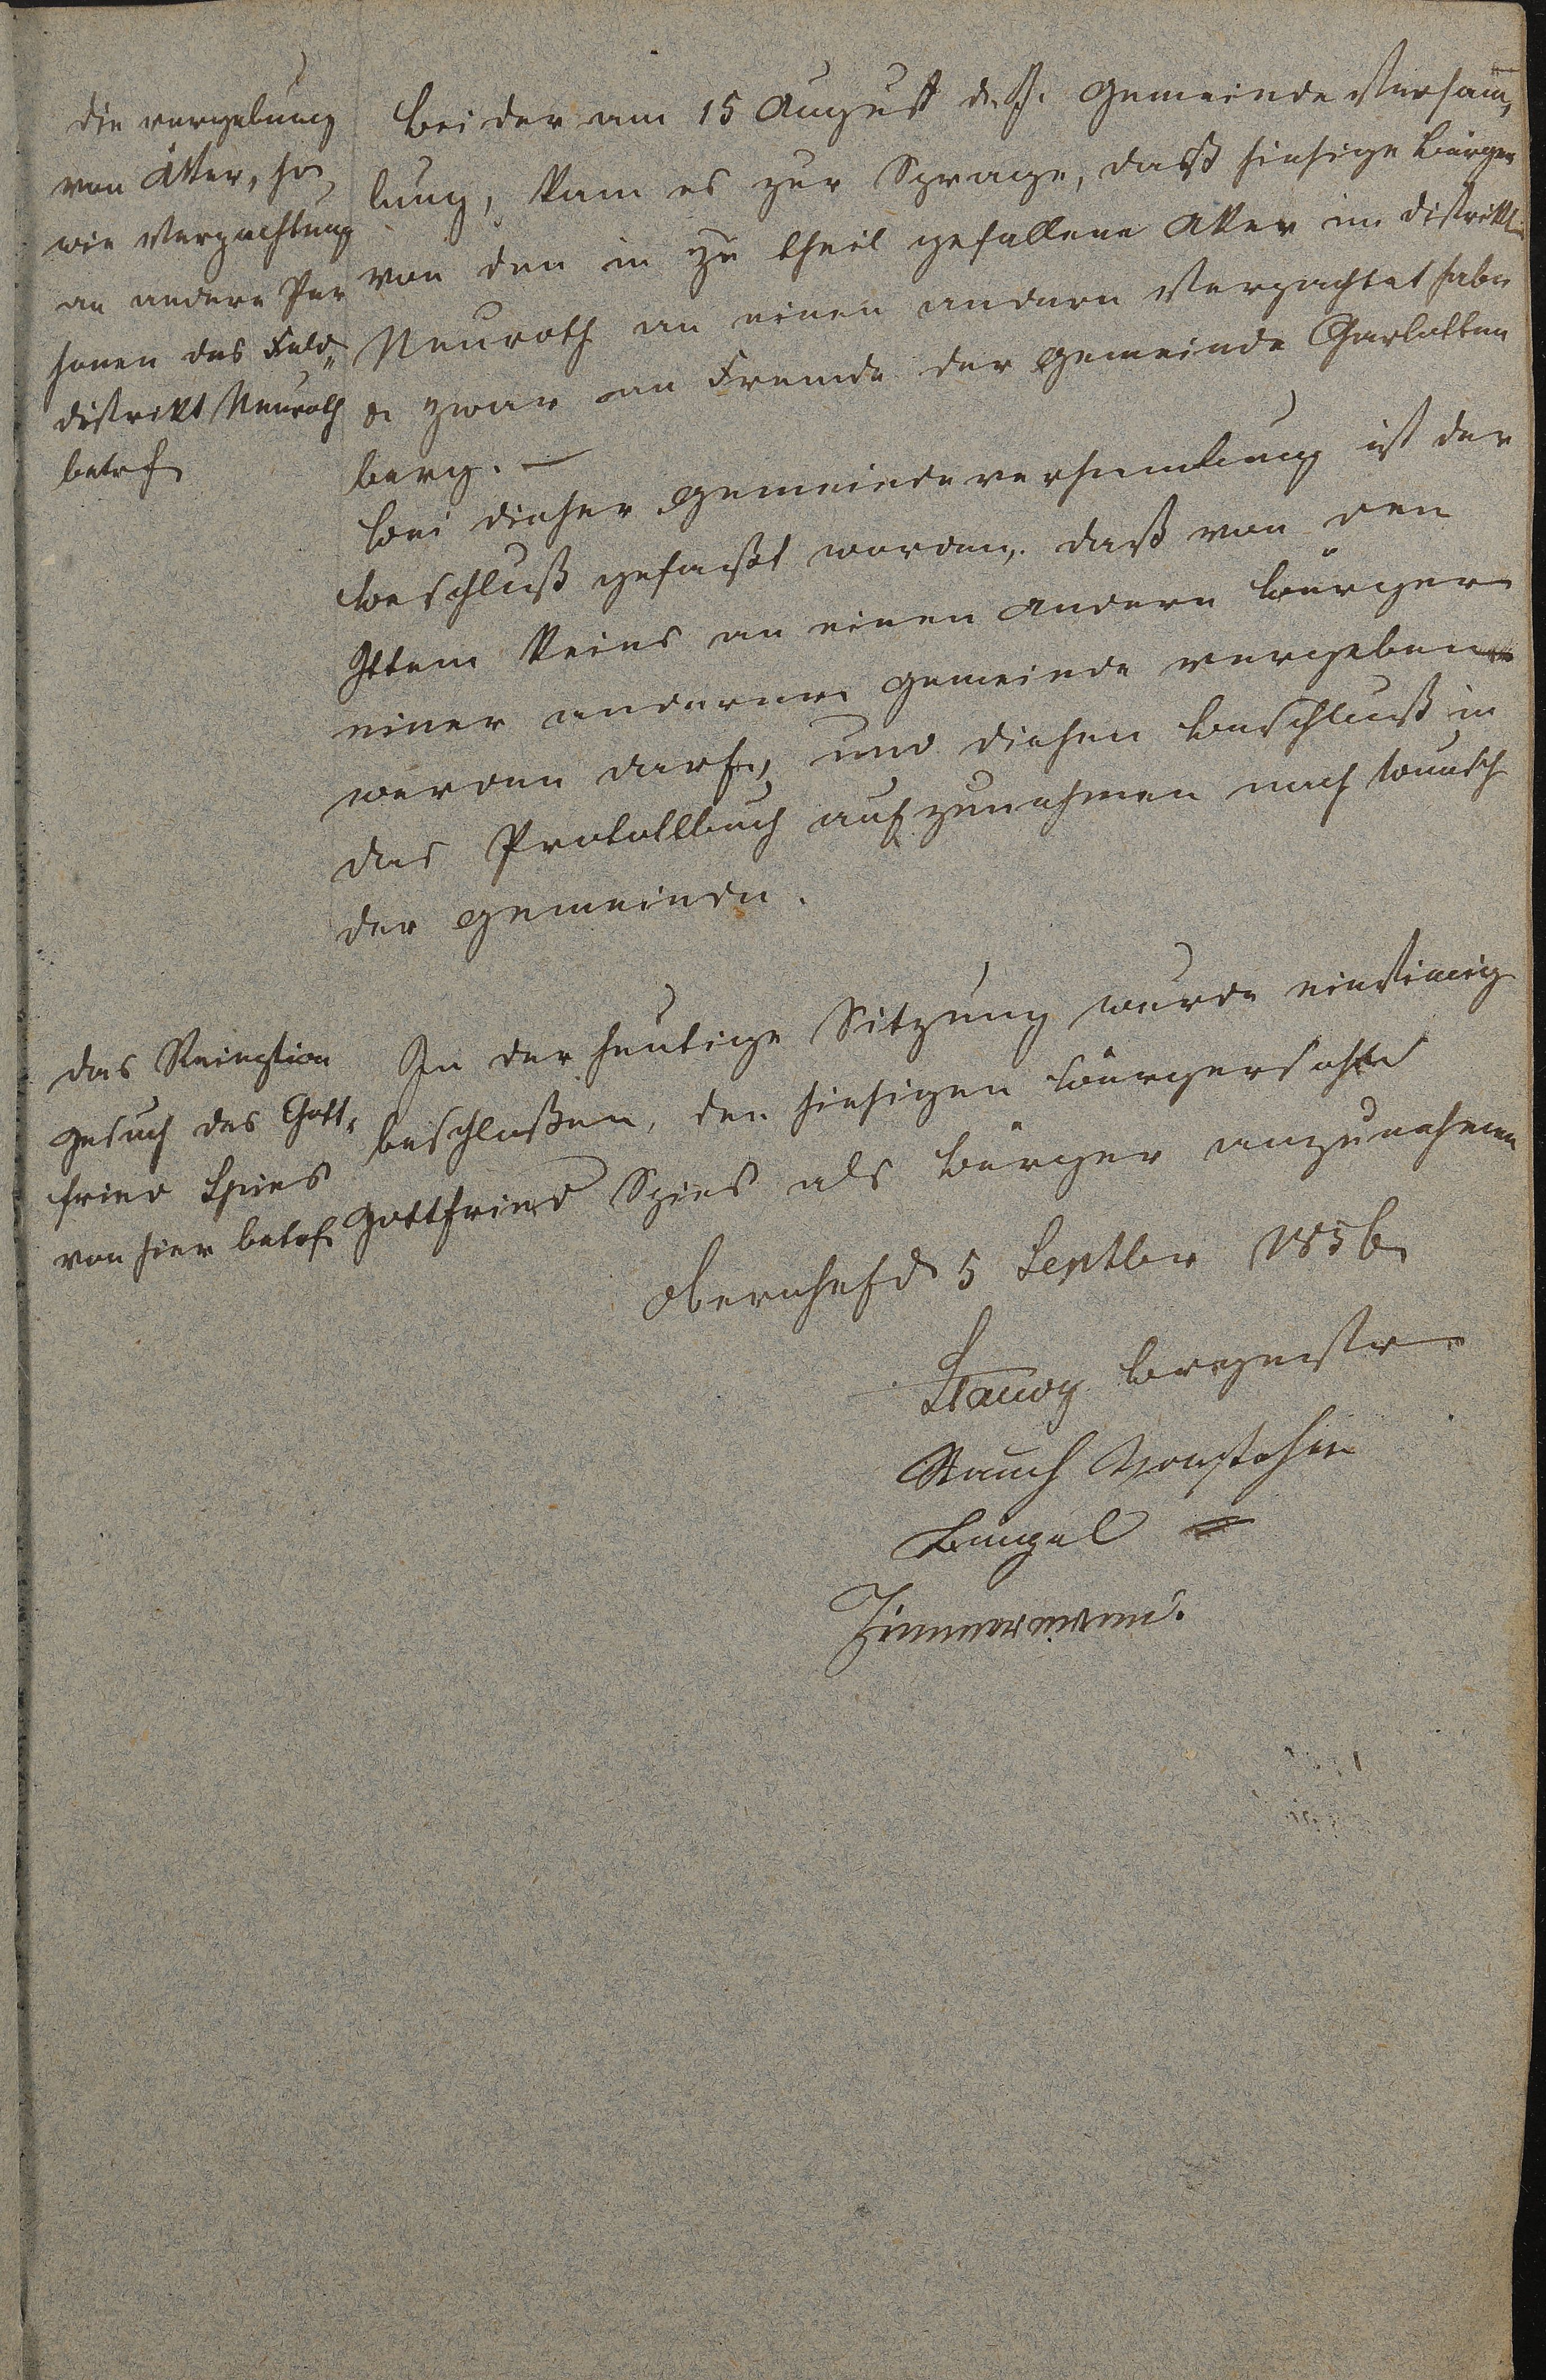 die vergebung
von Äkker, so
wie Verpachtung
an andere Per
sonen des Feld„
distrikt Neuroth
betrf
Bei der am 15 August d. J. Gemeinde Versam„
lung, kam es zur Sprage, daß hiesige Bürger
von den in zu theil gefallene Akker im distrikt
Neuroth an einen andern Verpachtet haben
& zwar an Fremde der Gemeinde Charlotten
berg. —
bei dieser Gemeindeversamlung ist der
beschluß gefaßt worden, daß von den
keines an einen andern bürger
einer anderen Gemeinde vergeben
werden darf, und diesen beschluß in
das Protokllbuch aufzunehmen nach wunsch
der Gemeinde.
das
gesuch des Gott„
fried Spies
von hier betrf
In der heutige Sitzung wurde einstimig
beschloßen, den hiesigen bürgersohn
Gottfried Spies als bürger anzunehmen
Obernhof d 5 Septber 1856
Vorsteher
Zimmermann.